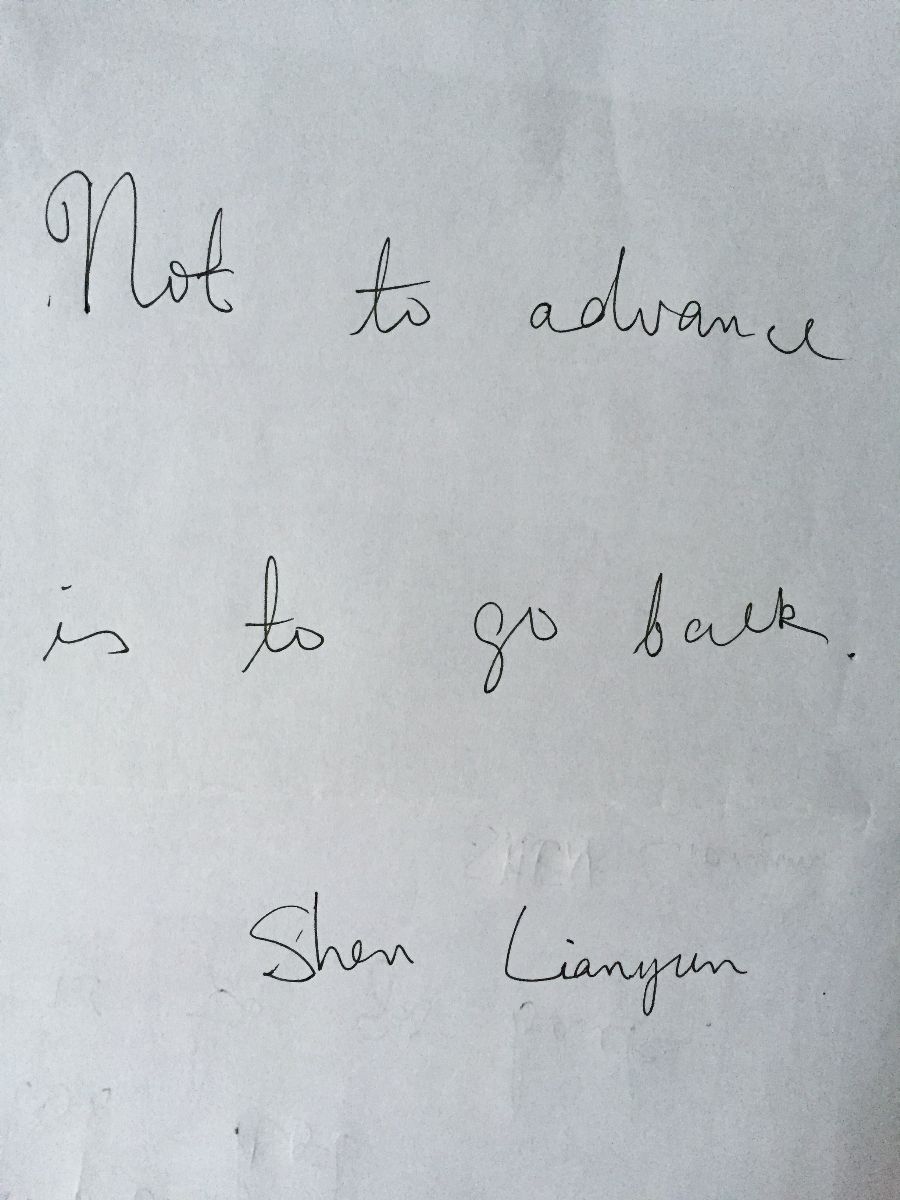 Not to advance
is to go back.
Shen Lianyun